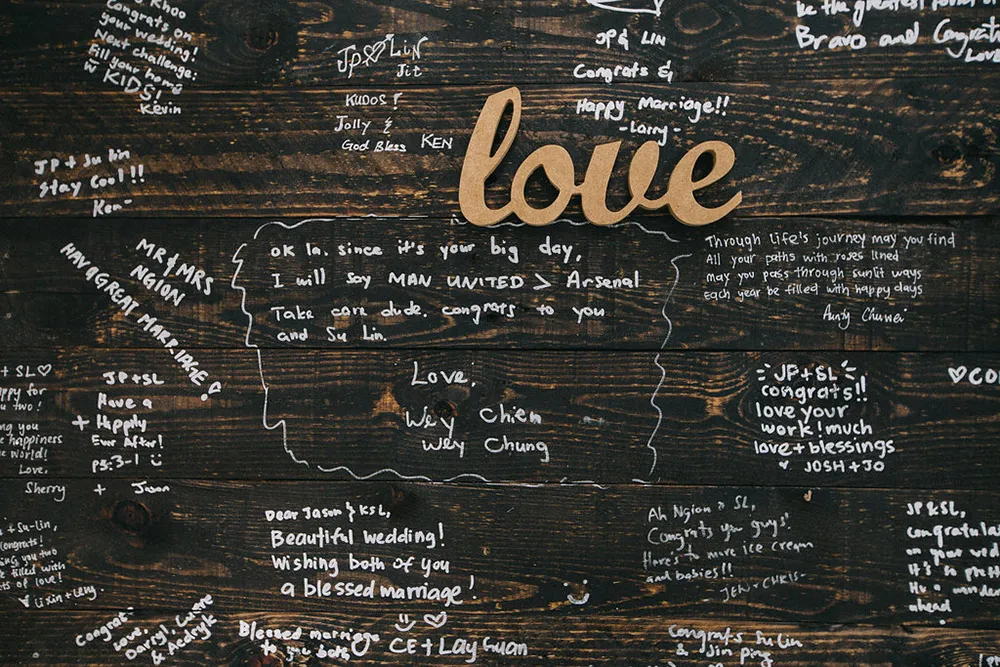 Khoo
Congrats on
your wedding!
Next challenge:
Fill your home
w KIDS!
Kevin
JP ♡ LIN
Jit
KUDOS!
Jolly &
God Bless KEN
JP & LIN
Congrats &
Happy Marriage!!
-Larry-
be the greatest
Bravo and Congrat
Love
love
JP + Su Lin
Stay Cool!!
Ken~
MR & MRS
NGION
HAVA GREAT MARRIAGE!
ok la. since it's your big day,
I will say MAN UNITED > Arsenal
Take care dude. congrats to you
and Su Lin.
Love,
Wey Chien
Wey Chung
Through life's journey may you find
All your paths with roses lined
May you pass through sunlit ways
Each year be filled with happy days
Aunty Chuwei
+ SL♡
ppy for
u two!
ng you
e happiness
e world!
Love,
Sherry + Jason
JP+SL
Have a
+ Happily
Ever After!
PS:3-1
JP+SL
congrats!!
love your
work! much
love + blessings
♥ JOSH + JO
♡ CO
+ Su-Lin,
ongrats!
ing you two
e filled with
ts of love!
♥ Lixin + Leng.
Dear Jason & KSL,
Beautiful wedding!
Wishing both of you
a blessed marriage!
Ah Ngion & SL,
Congrats you guys!
Here's to more ice cream
and babies!!
JEN + CHRIS-
JP & SL,
Congratula
on your wed
ahead
Congrats
Love,
Darryl, Carrie
& Aedryk
Blessed marriage
to you both
CE + LAY GUAN
Congrats Su Lin
& Jim ping